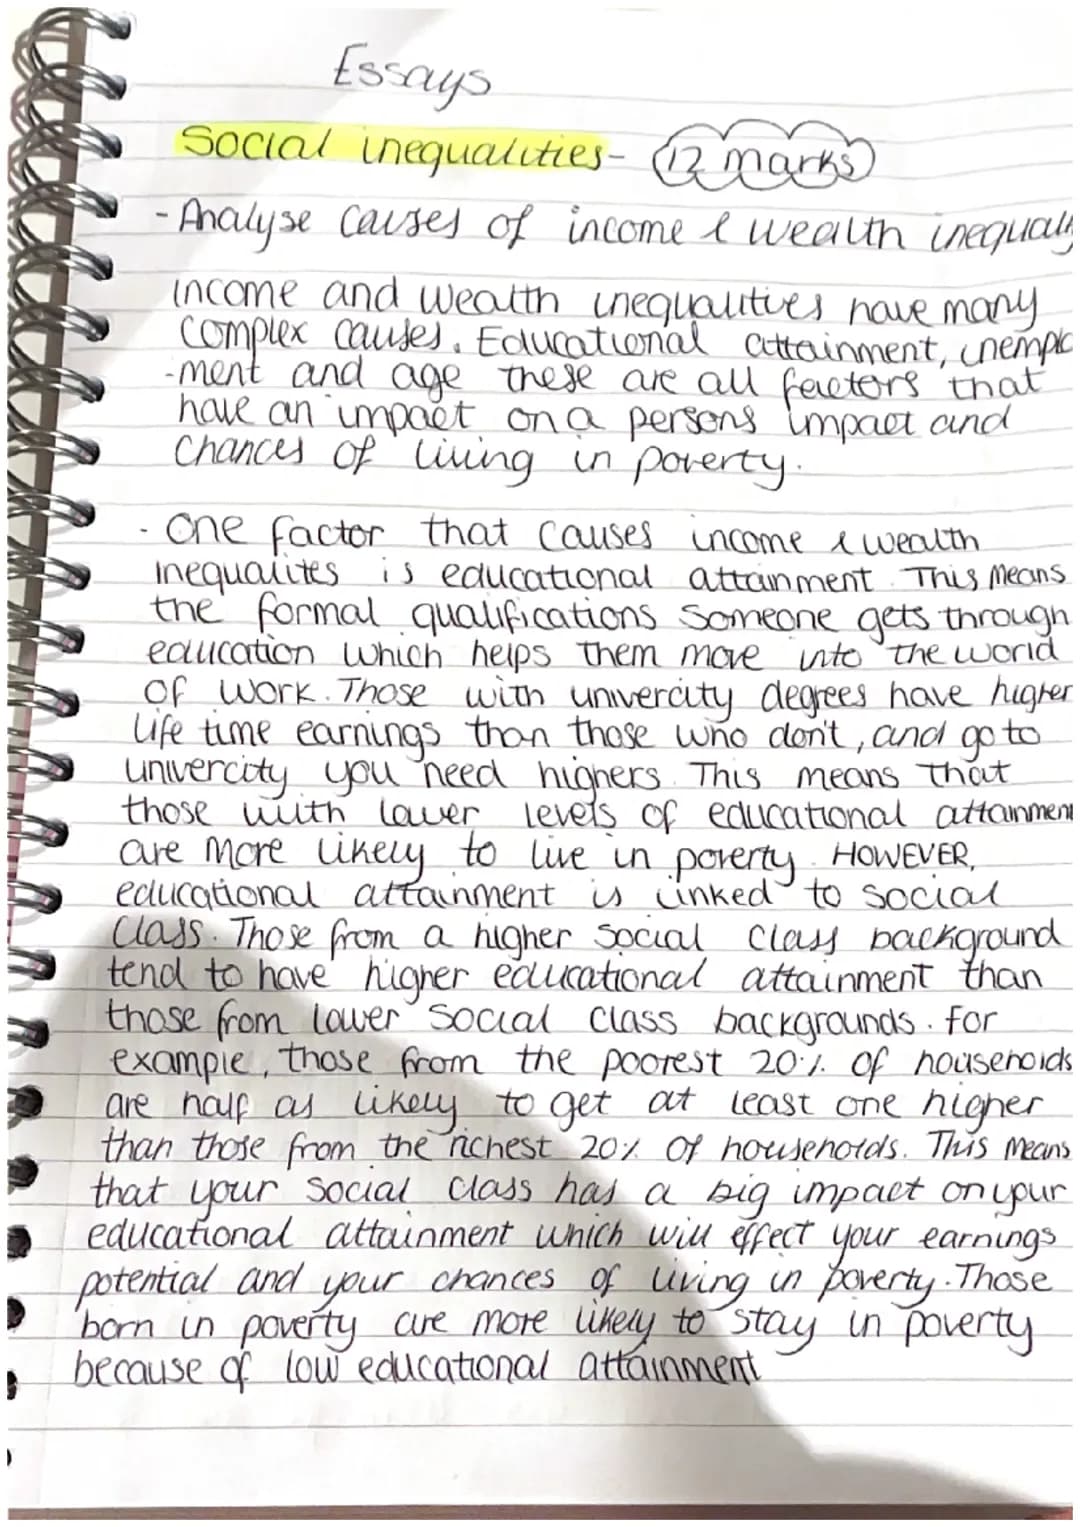 Essays
Social inequalities- 12 marks
- Analyse causes of income & wealth inequality
income and wealth inequalitives have many
complex causes. Educational attainment, unemplo
-ment and age these are all factors that
have an impact on a persons impact and
chances of living in poverty.
- One factor that causes income & wealth
inequalites is educational attainment. This means
the formal qualifications someone gets through
education which helps them move into the world
of work. Those with univercity degrees have higher
life time earnings than those who don't, and go to
univercity you need highers. This means that
those with lower levels of educational attainment
are more likely to live in poverty. HOWEVER,
educational attainment is linked to social
class. Those from a higher social class background
tend to have higher educational attainment than
those from lower social class backgrounds. For
example, those from the poorest 20% of households
are half as likely to get at least one higher
than those from the richest 20% of households. This means
that your social class has a big impact on your
educational attainment which will effect your earnings
potential and your chances of living in poverty. Those
born in poverty are more likely to stay in poverty
because of low educational attainment